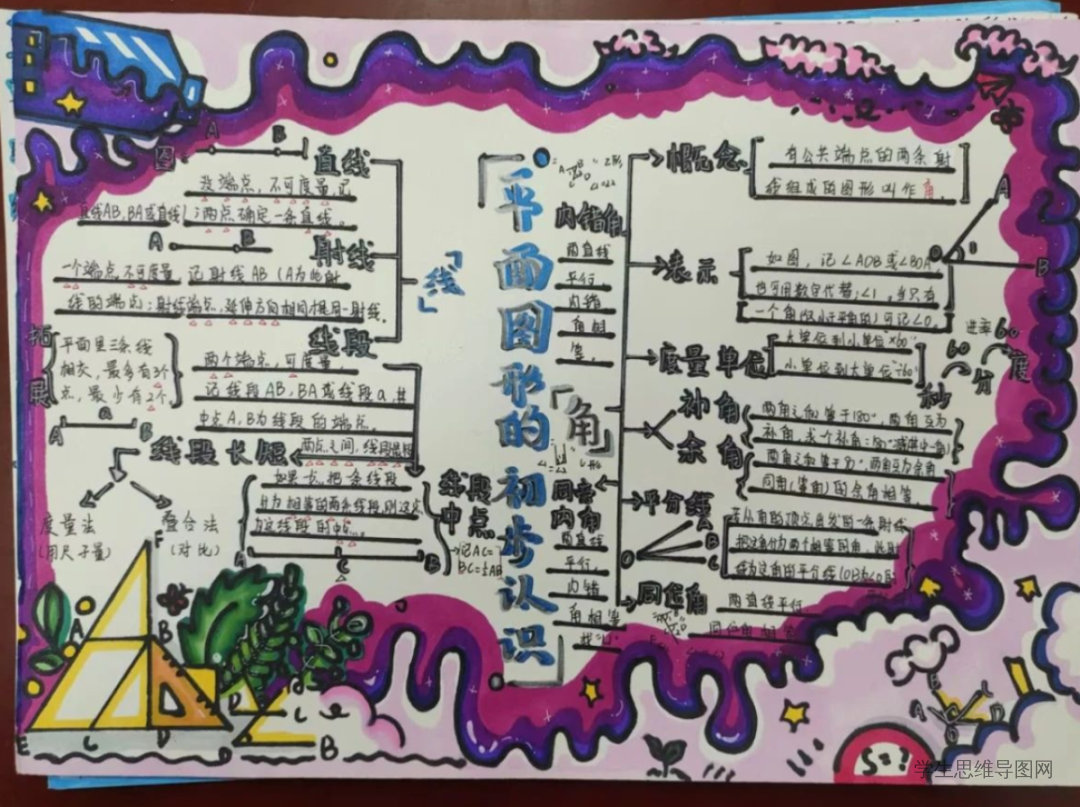 平面图形的初步认识
「线」
A B
直线
没端点,不可度量,记
直线AB,BA或直线l;两点确定一条直线。
A B
射线
一个端点,不可度量,记射线AB(A为此射
线的端点;射线端点,延伸方向相同根同一射线。
线段
两个端点,可度量,
记线段AB,BA或线段a,其
中点A,B为线段的端点。
拓展
平面里三条线
相交,最多有3个
点,最少有2个。
a
A B
线段长短
两点之间,线段最短
度量法
(用尺子量)
叠合法
(对比)
线段
中点
并为相等的两条线段,则这点
为这线段的中点。
A C B
记AC=
BC=½AB
F
A B
E C D
B
「角」
内错角
两直线
平行,
内错
角相
等。
同旁
内角
两直线
平行,
内错
角相等
概念
有公共端点的两条射
线组成的图形叫作角。
A
O 1 B
表示
如图,记∠AOB或∠BOA
也可用数字代替;∠1,当只有
一个角(仅小于平角的)可记∠O。
度量单位
大单位到小单位"×60"
小单位到大单位"÷60"
进率60
60
度
分
秒
补角
两角之和等于180°,两角互为
余角
两角之和等于90°,两角互为余角
同角(等角)的余角相等。
平分线
O B C
若从角的顶点出发的一条射线
把这角分为两个相等的角,此射
同位角
两直线平行
同位角相等
S=?
学生思维导图网